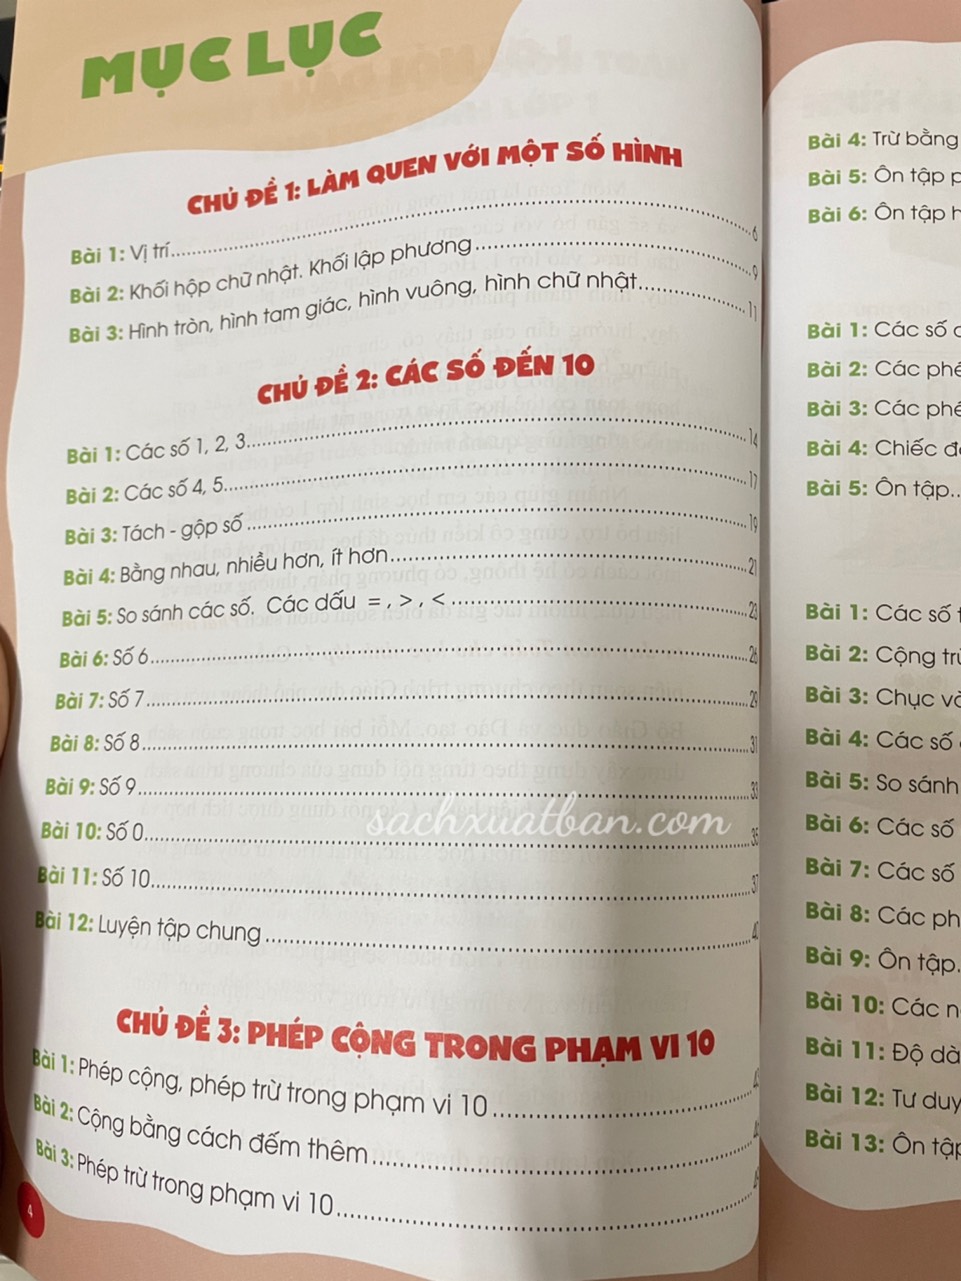 MỤC LỤC
CHỦ ĐỀ 1: LÀM QUEN VỚI MỘT SỐ HÌNH
Bài 1: Vị trí 6
Bài 2: Khối hộp chữ nhật. Khối lập phương 9
Bài 3: Hình tròn, hình tam giác, hình vuông, hình chữ nhật 11
CHỦ ĐỀ 2: CÁC SỐ ĐẾN 10
Bài 1: Các số 1, 2, 3 14
Bài 2: Các số 4, 5 17
Bài 3: Tách - gộp số 19
Bài 4: Bằng nhau, nhiều hơn, ít hơn 21
Bài 5: So sánh các số. Các dấu = , > , < 23
Bài 6: Số 6 26
Bài 7: Số 7 29
Bài 8: Số 8 31
Bài 9: Số 9 33
Bài 10: Số 0 35
Bài 11: Số 10 37
Bài 12: Luyện tập chung 40
CHỦ ĐỀ 3: PHÉP CỘNG TRONG PHẠM VI 10
Bài 1: Phép cộng, phép trừ trong phạm vi 10
Bài 2: Cộng bằng cách đếm thêm
Bài 3: Phép trừ trong phạm vi 10
4
sachxuatban.com
Bài 4: Trừ bằng
Bài 5: Ôn tập
Bài 6: Ôn tập
Bài 1: Các số
Bài 2: Các
Bài 3: Các
Bài 4: Chiếc
Bài 5: Ôn tập
Bài 1: Các số
Bài 2: Cộng
Bài 3: Chục
Bài 4: Các số
Bài 5: So sánh
Bài 6: Các số
Bài 7: Các số
Bài 8: Các
Bài 9: Ôn tập
Bài 10: Các
Bài 11: Độ
Bài 12: Tư duy
Bài 13: Ôn